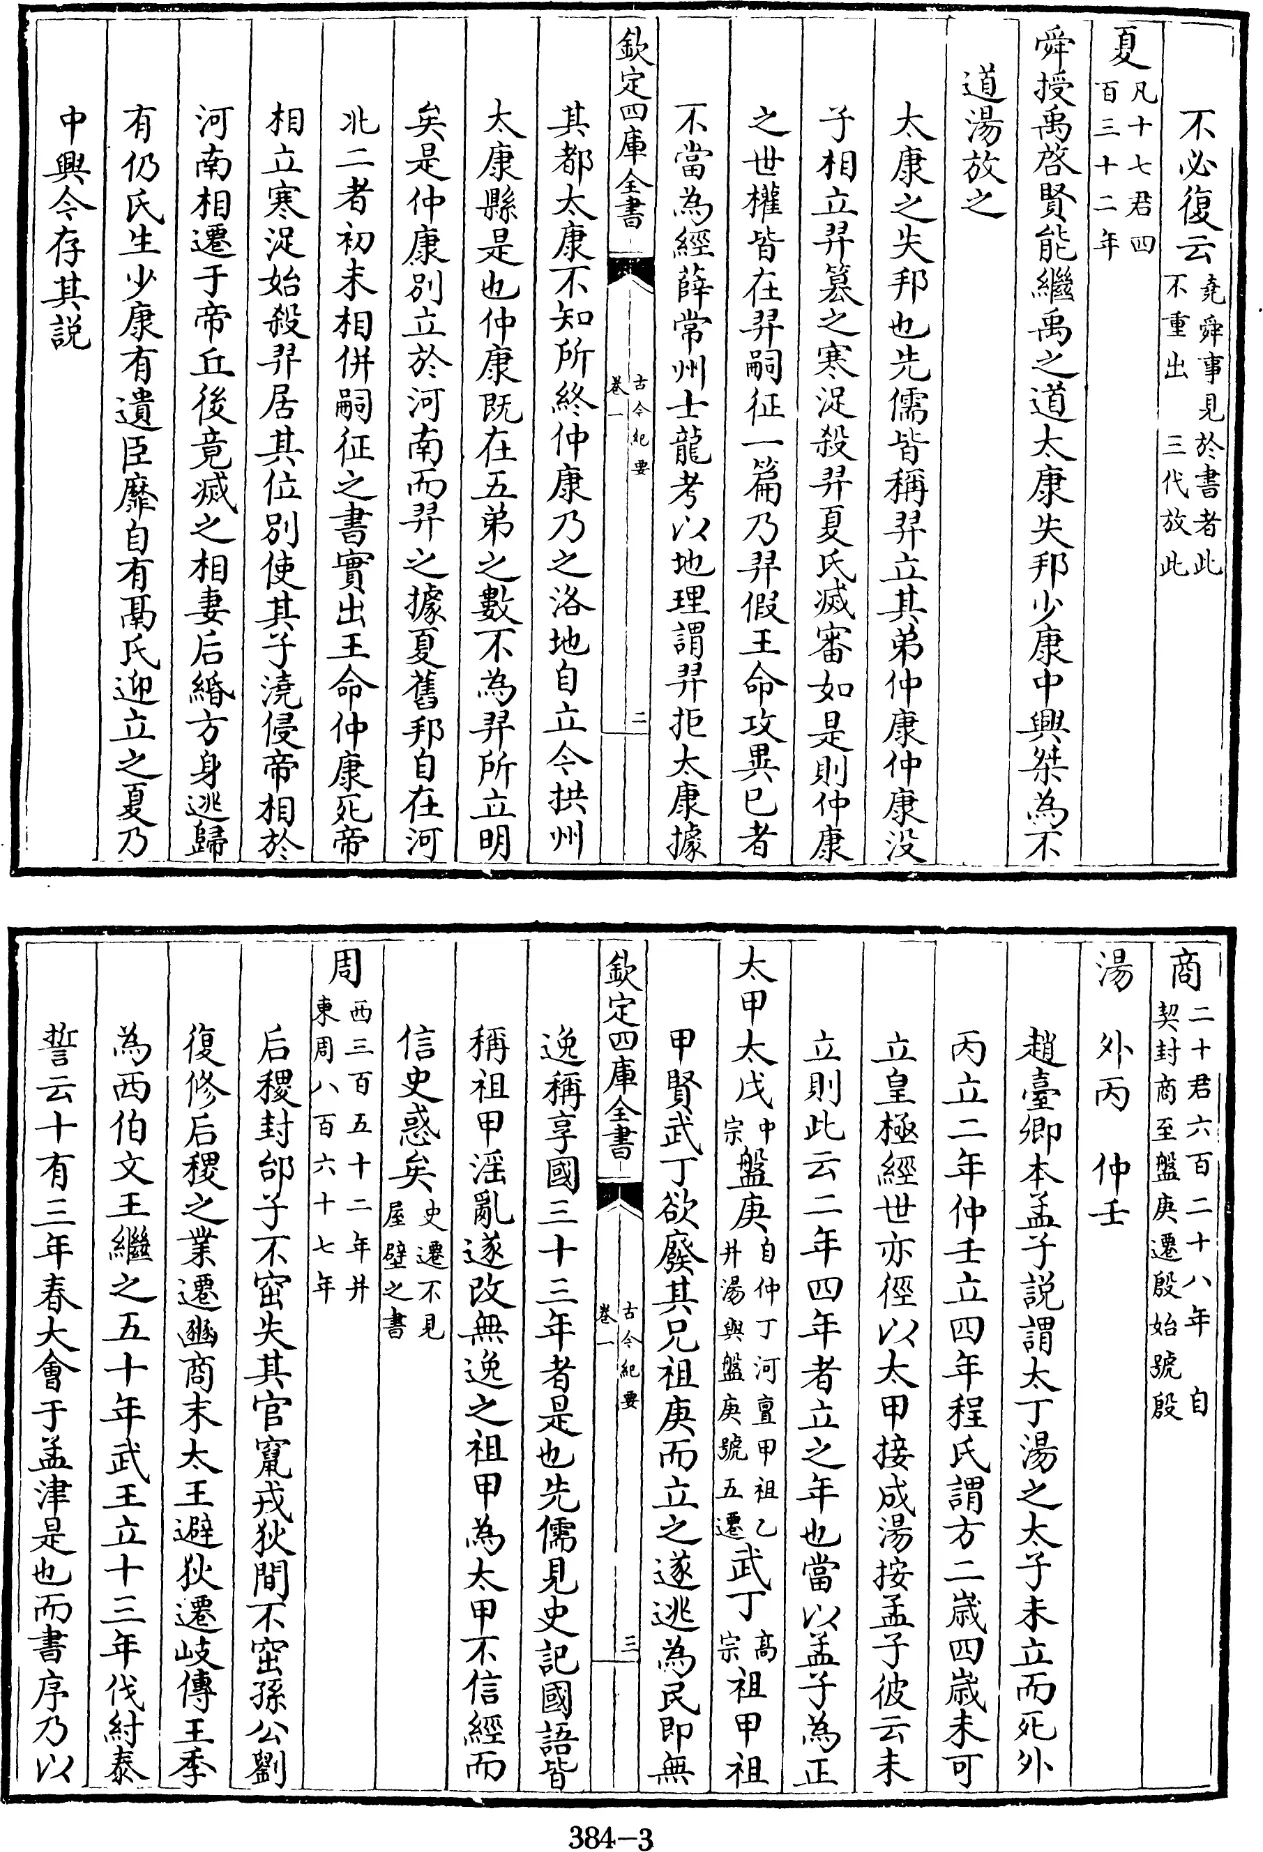 不必復云堯舜事見於書者此不重出　三代放此
夏凡十七君四百三十二年
舜授禹啓賢能繼禹之道太康失邦少康中興桀為不
道湯放之
太康之失邦也先儒皆稱羿立其弟仲康仲康没
子相立羿簒之寒浞殺羿夏氏滅審如是則仲康
之世權皆在羿嗣征一篇乃羿假王命攻異已者
不當為經薛常州士龍考以地理謂羿拒太康據
欽定四庫全書
古今紀要
卷一
二
其都太康不知所終仲康乃之洛地自立今拱州
太康縣是也仲康既在五弟之數不為羿所立明
矣是仲康別立於河南而羿之據夏舊邦自在河
北二者初未相併嗣征之書實出王命仲康死帝
相立寒浞始殺羿居其位別使其子澆侵帝相於
河南相遷于帝丘後竟滅之相妻后緡方身逃歸
有仍氏生少康有遺臣靡自有鬲氏迎立之夏乃
中興今存其説
商二十君六百二十八年　自契封商至盤庚遷殷始號殷
湯　外丙　仲壬
趙臺卿本孟子説謂太丁湯之太子未立而死外
丙立二年仲壬立四年程氏謂方二歳四歳未可
立皇極經世亦徑以太甲接成湯按孟子彼云未
立則此云二年四年者立之年也當以孟子為正
太甲太戊中宗盤庚自仲丁河亶甲祖乙井湯與盤庚號五遷武丁高宗祖甲祖
甲賢武丁欲廢其兄祖庚而立之遂逃為民即無
欽定四庫全書
古今紀要
卷一
三
逸稱享國三十三年者是也先儒見史記國語皆
稱祖甲淫亂遂改無逸之祖甲為太甲不信經而
信史惑矣史遷不見屋壁之書
周西三百五十二年并東周八百六十七年
后稷封邰子不窋失其官竄戎狄間不窋孫公劉
復修后稷之業遷豳商末太王避狄遷岐傳王季
為西伯文王繼之五十年武王立十三年伐紂泰
誓云十有三年春大會于孟津是也而書序乃以
384-3